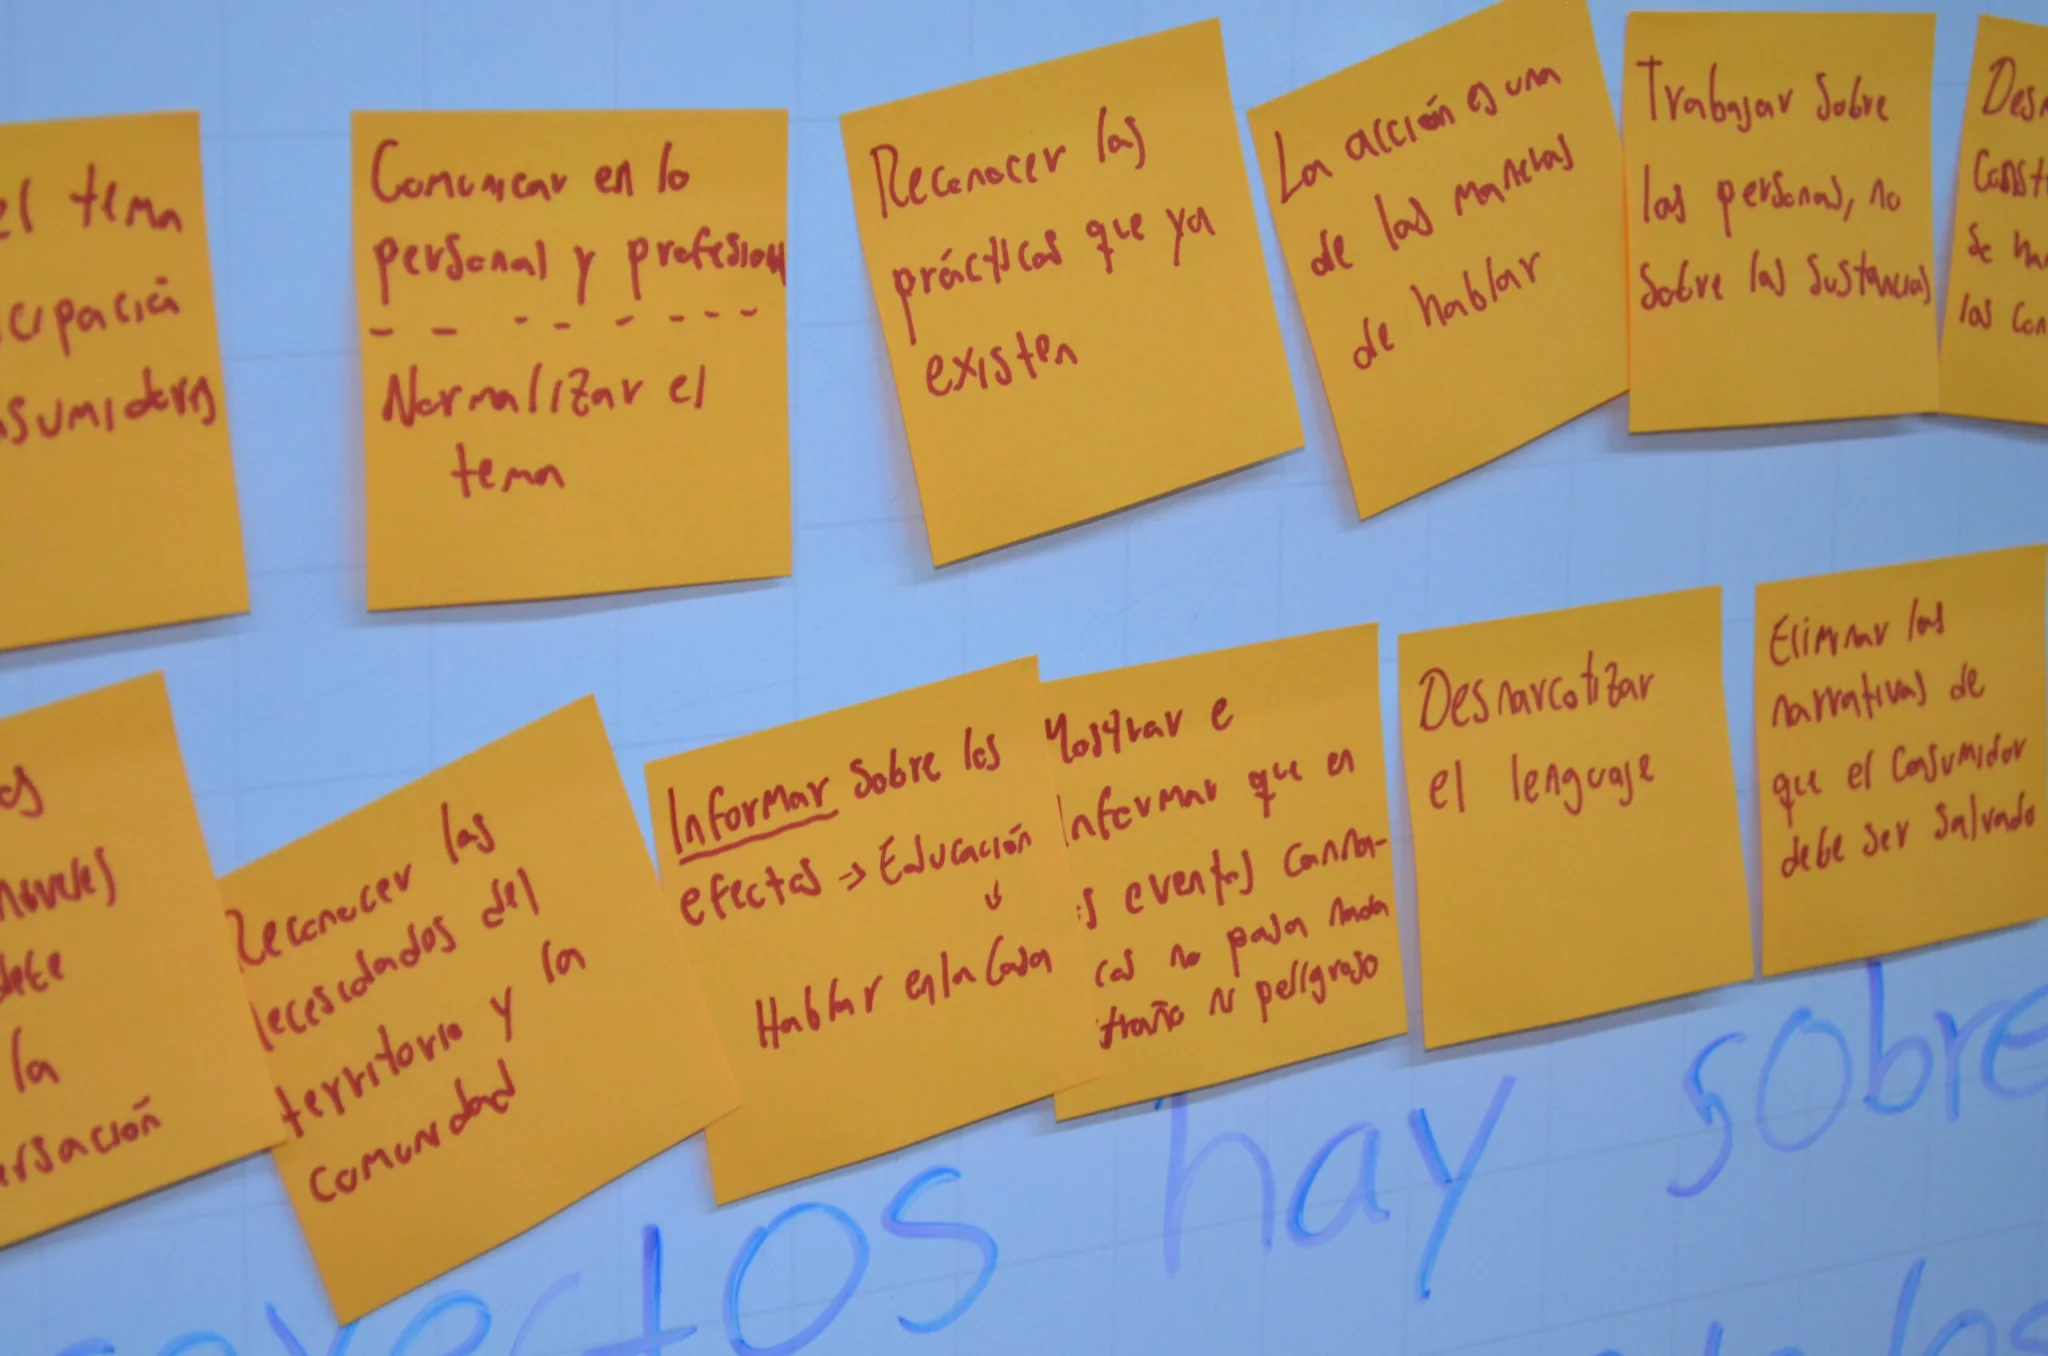 el tema
cipación
sumidores
Comunicar en lo
personal y profesional
Normalizar el
tema
Reconocer las
prácticas que ya
existen
La acción es una
de las maneras
de hablar
Trabajar sobre
las personas, no
sobre las sustancias
Des
Const
se
las con
os
niveles
la
ersación
Reconocer las
necesidades del
territorio y la
comunidad
Informar sobre los
efectos → Educación
↓
Hablar en la casa
Mostrar e
informar que en
s eventos canna-
cos no pasa nada
traño ni peligroso
Desnarcotizar
el lenguaje
Eliminar las
narrativas de
que el consumidor
debe ser salvado
oyectos hay sobre
los